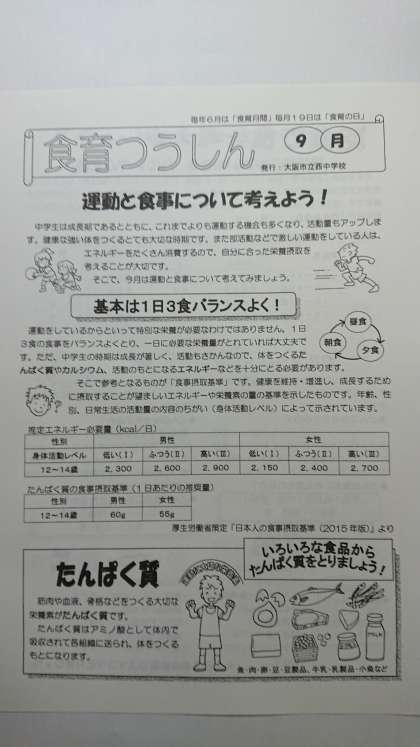 毎年6月は「食育月間」毎月19日は「食育の日」
食育つうしん
9月
発行:大阪市立西中学校
運動と食事について考えよう!
中学生は成長期であるとともに、これまでよりも運動する機会も多くなり、活動量もアップしま
す。健康な強い体をつくるとても大切な時期です。また部活動などで激しい運動をしている人は、
エネルギーをたくさん消費するので、自分に合った栄養摂取を
考えることが大切です。
そこで、今月は運動と食事について考えてみましょう。
基本は1日3食バランスよく!
運動をしているからといって特別な栄養が必要なわけではありません。1日
3食の食事をバランスよくとり、一日に必要な栄養量がとれていれば大丈夫で
す。ただ、中学生の時期は成長が著しく、活動もさかんなので、体をつくるた
んぱく質やカルシウム、活動のもとになるエネルギーなどを十分にとる必要があります。
昼食
朝食
夕食
そこで参考となるものが「食事摂取基準」です。健康を維持・増進し、成長するため
に摂取することが望ましいエネルギーや栄養素の量の基準を示したものです。年齢、性
別、日常生活の活動量の内容のちがい(身体活動レベル)によって示されています。
推定エネルギー必要量(kcal/日)
性別 男性 女性
身体活動レベル 低い(Ⅰ) ふつう(Ⅱ) 高い(Ⅲ) 低い(Ⅰ) ふつう(Ⅱ) 高い(Ⅲ)
12~14歳 2,300 2,600 2,900 2,150 2,400 2,700
たんぱく質の食事摂取基準(1日あたりの推奨量)
性別 男性 女性
12~14歳 60g 55g
厚生労働省策定『日本人の食事摂取基準(2015年版)』より
たんぱく質
筋肉や血液、骨格などをつくる大切な
栄養素がたんぱく質です。
たんぱく質はアミノ酸として体内で
吸収されて各組織に送られ、体をつくる
もとになります。
いろいろな食品から
たんぱく質をとりましょう!
魚・肉・卵・豆・豆製品、牛乳・乳製品・小魚など